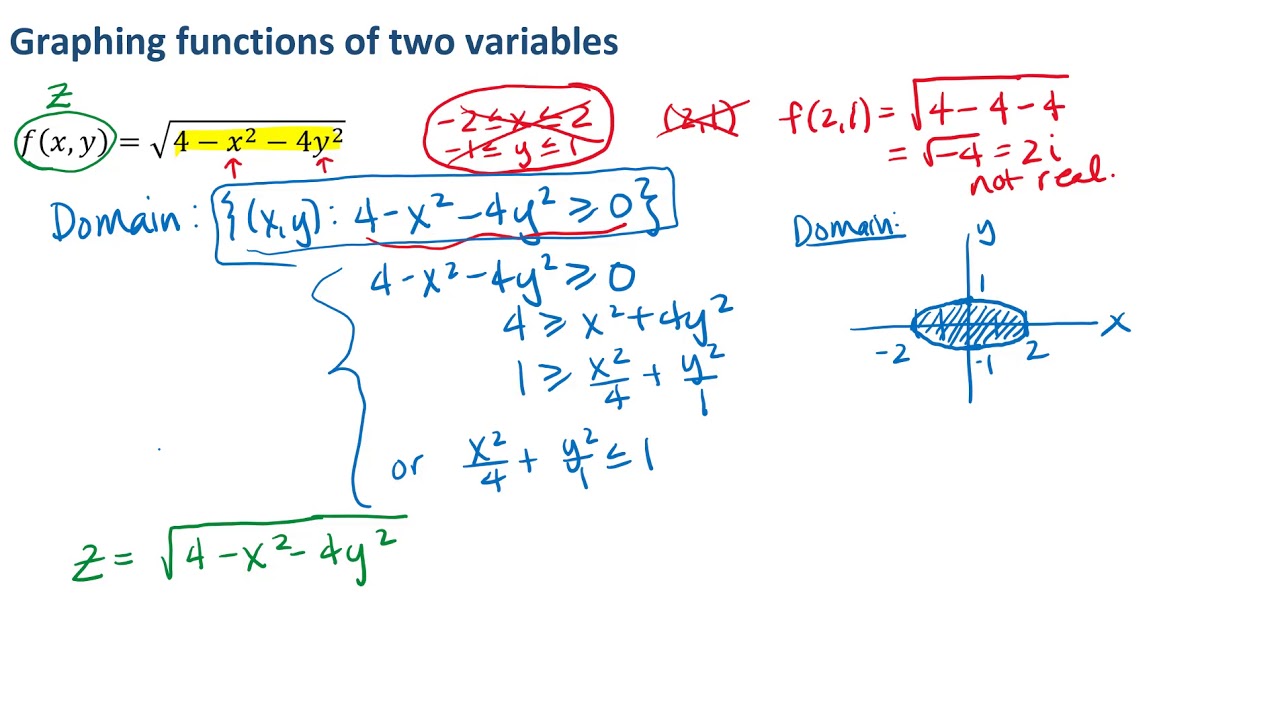 Graphing functions of two variables
z
f(x, y) = √(4 − x² − 4y²)
-2 ≤ x ≤ 2
-1 ≤ y ≤ 1
(2,1)
f(2,1) = √(4-4-4)
= √-4 = 2i
not real.
Domain: {(x,y): 4-x²-4y² ≥ 0}
4-x²-4y² ≥ 0
4 ≥ x²+4y²
1 ≥ x²/4 + y²/1
or x²/4 + y²/1 ≤ 1
Domain:
y
1
x
-2
-1
2
z = √(4-x²-4y²)